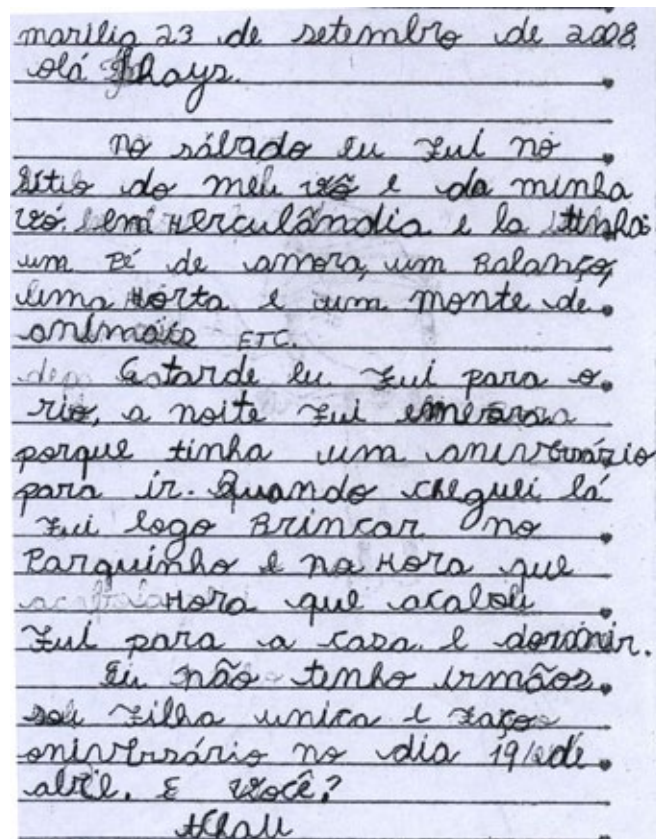 marília 23 de setembro de 2008
olá Thays.
no sábado eu Fui no
sitio do meu vô e da minha
vó. em Herculândia e la tinha
um Pé de amora, um Balanço,
uma Horta e um monte de
animais ETC.
E a tarde eu Fui para o
rio, a noite Fui embora
porque tinha um aniversário
para ir. Quando cheguei lá
Fui logo Brincar no
Parquinho e na Hora que
Hora que acabou
Fui para a casa e dormir.
Eu não tenho irmãos
sou Filha unica e Faço
aniversário no dia 19 de
abril. E você?
tchau